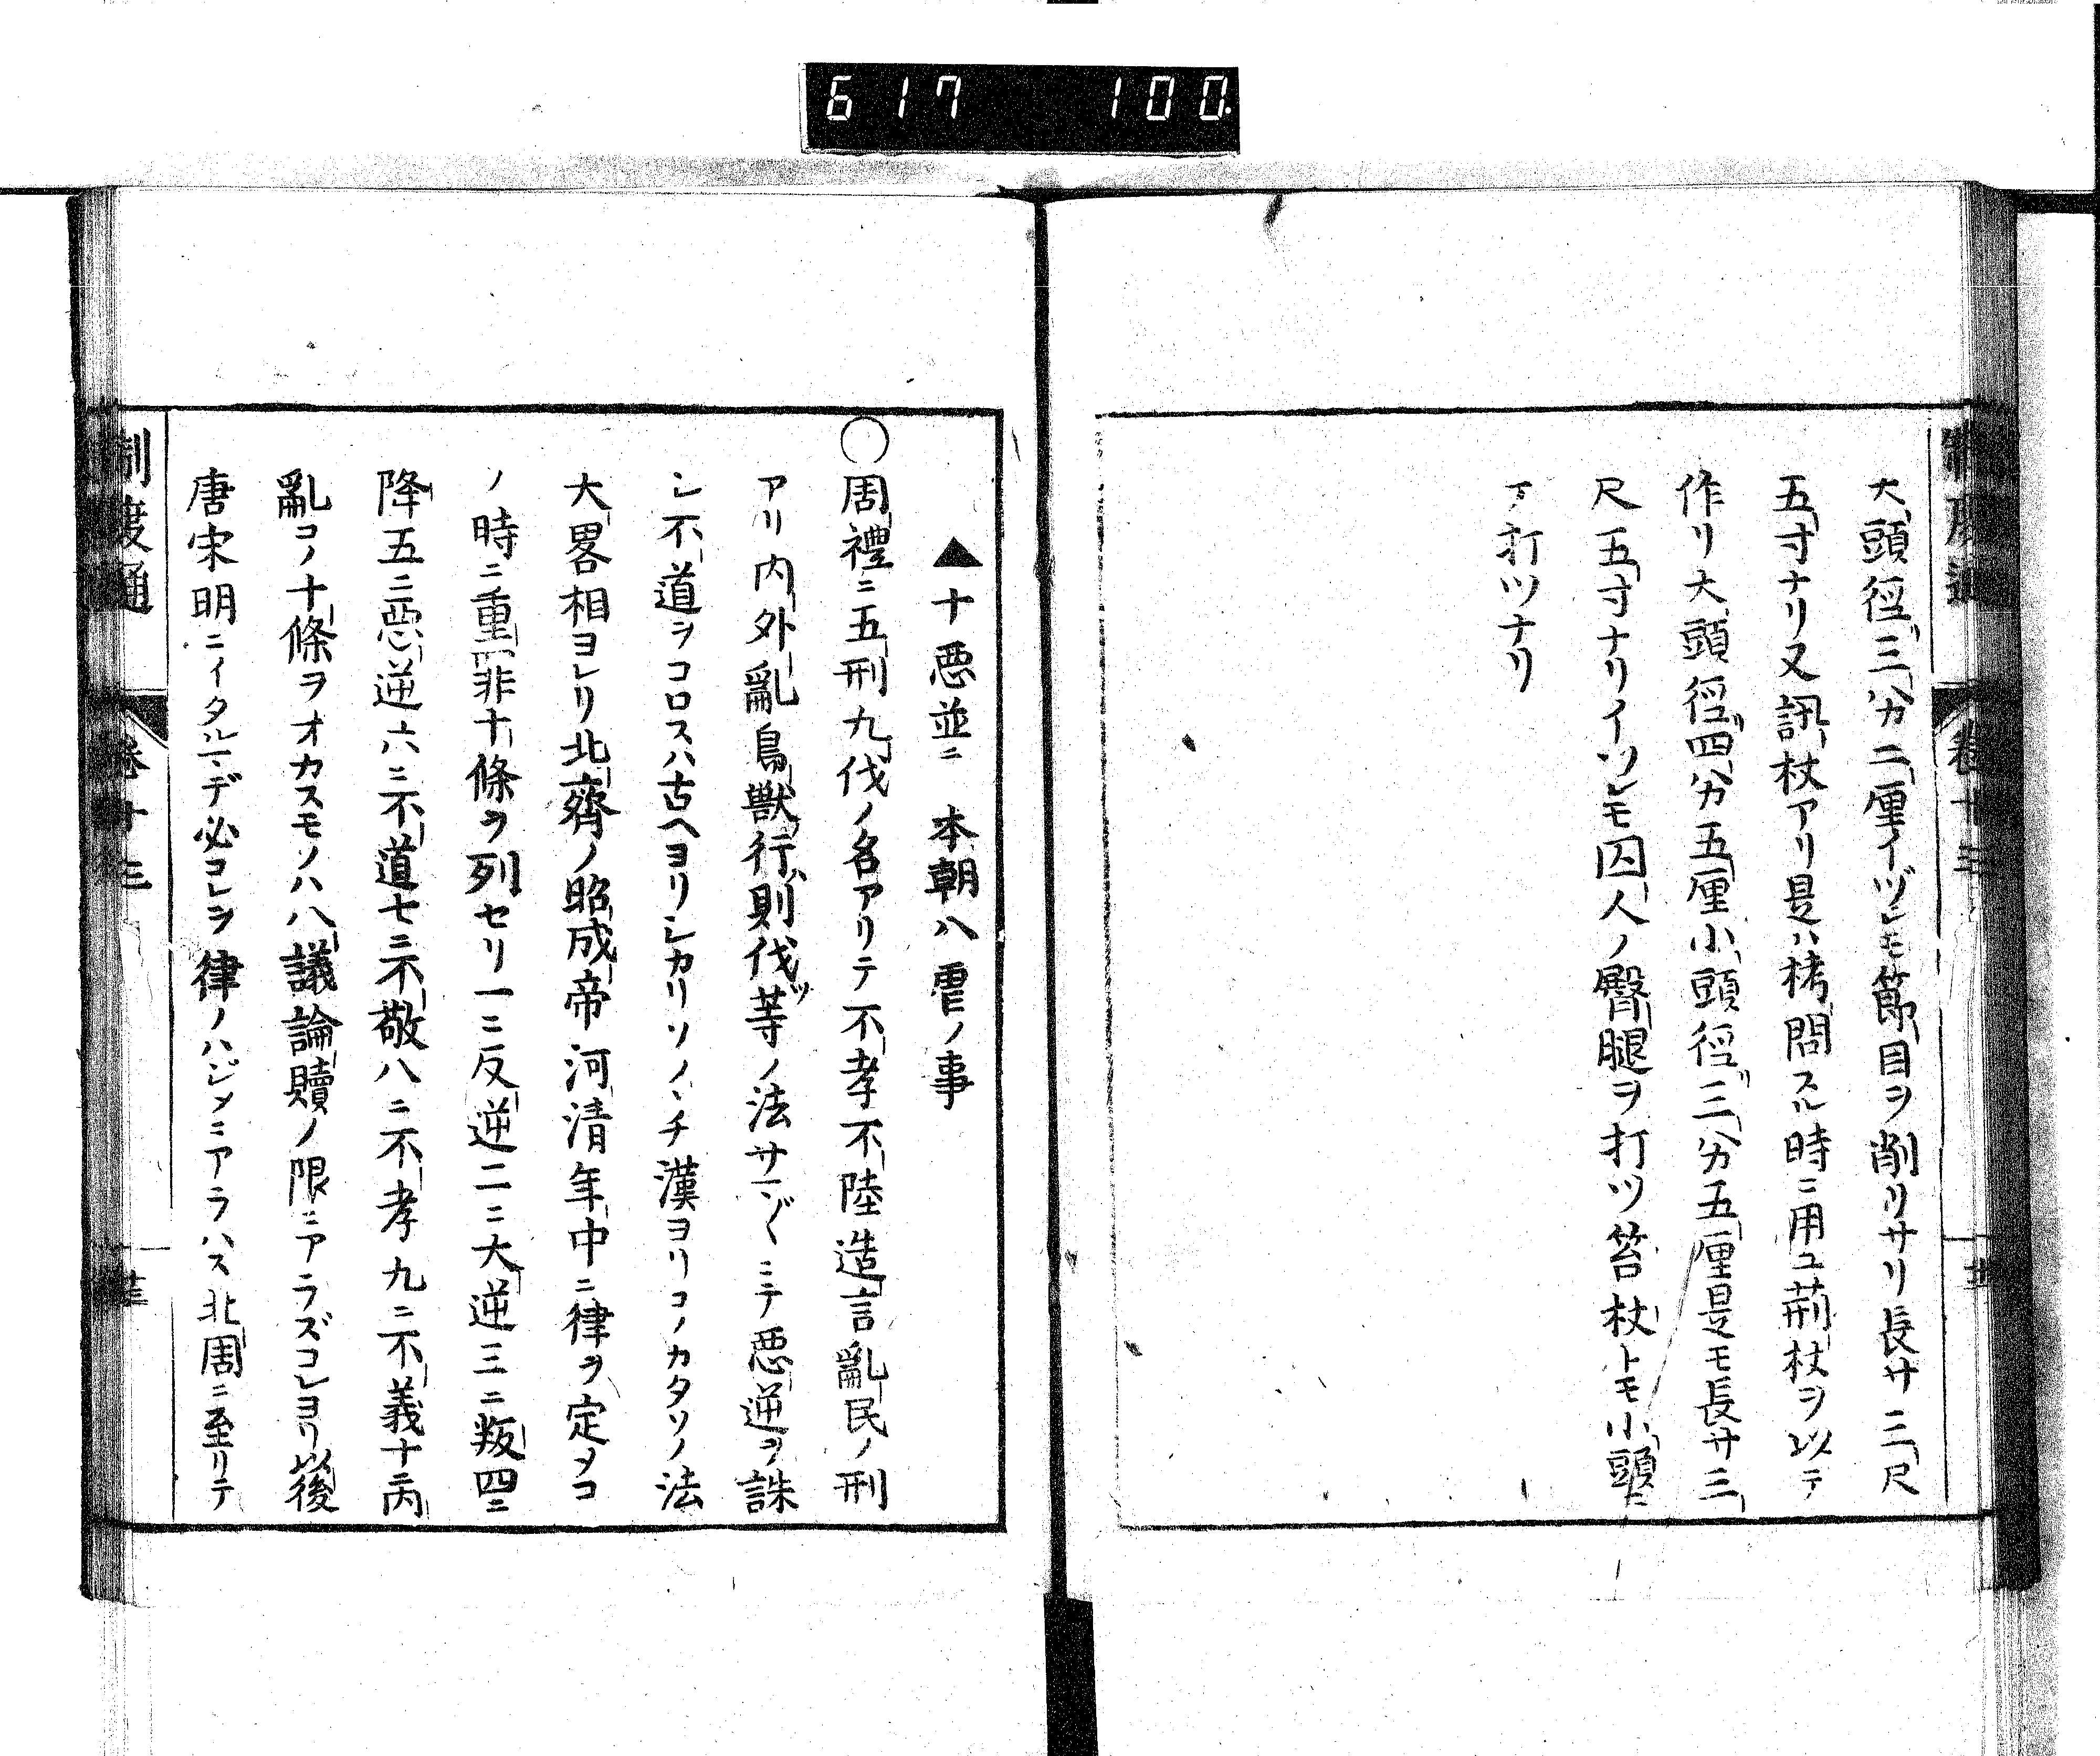 617 100.
制度通 卷十三
大頭徑三分二厘イヅレモ節目ヲ削リサリ長サ三尺
五寸ナリ又訊杖アリ是ハ栲問スル時ニ用ユ荊杖ヲ以テ
作リ大頭徑四分五厘小頭徑三分五厘是モ長サ三
尺五寸ナリイツレモ囚人ノ臀腿ヲ打ツ笞杖トモ小頭ニ
テ打ツナリ
▲十惡並ニ 本朝八虐ノ事
○周禮ニ五刑九伐ノ名アリテ不孝不陸造言亂民ノ刑
アリ内外亂鳥獣行則伐等ノ法サマ〴〵ニテ惡逆ヲ誅
シ不道ヲコロスハ古ヘヨリシカリソノヽチ漢ヨリコノカタソノ法
大畧相ヨレリ北齊ノ昭成帝河清年中ニ律ヲ定メコ
ノ時ニ重非十條ヲ列セリ一ニ反逆二ニ大逆三ニ叛四ニ
降五ニ惡逆六ニ不道七ニ不敬八ニ不孝九ニ不義十ニ内
亂コノ十條ヲオカスモノハ八議論贖ノ限ニアラズコレヨリ以後
唐宋明ニイタルマデ必コレヲ律ノハジメニアラハス北周ニ至リテ
制度通 卷十三